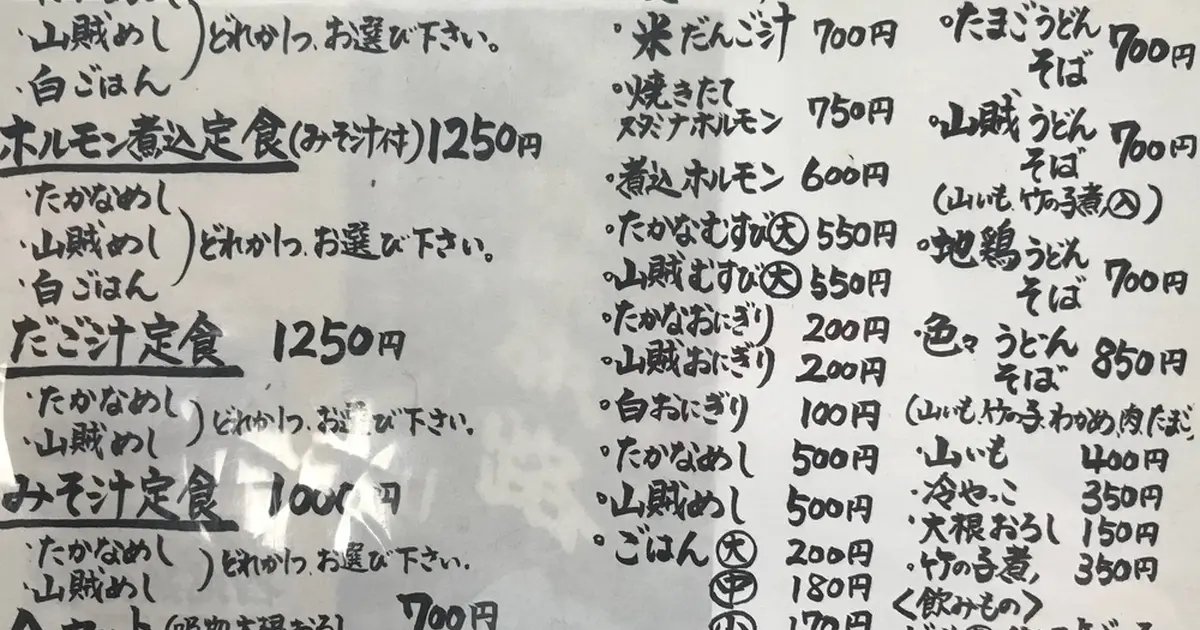 ・山賊めし
どれか1つ、お選び下さい。
・白ごはん
ホルモン煮込定食(みそ汁付)1250円
・たかなめし
・山賊めし
どれか1つ、お選び下さい。
・白ごはん
だご汁定食 1250円
・たかなめし
・山賊めし
どれか1つ、お選び下さい。
みそ汁定食 1000円
・たかなめし
・山賊めし
どれか1つ、お選び下さい。
700円
・米だんご汁 700円
・焼きたて
スタミナホルモン 750円
・煮込ホルモン 600円
・たかなむすび(大) 550円
・山賊むすび(大) 550円
・たかなおにぎり 200円
・山賊おにぎり 200円
・白おにぎり 100円
・たかなめし 500円
・山賊めし 500円
・ごはん(大) 200円
(中) 180円
(小) 170円
・たまごうどん
そば 700円
・山賊うどん
そば 700円
(山いも、竹の子煮、入)
・地鶏うどん
そば 700円
・色々うどん
そば 850円
(山いも、竹の子、わかめ、肉、たまご、
・山いも 400円
・冷やっこ 350円
・大根おろし 150円
・竹の子煮、 350円
<飲みもの>